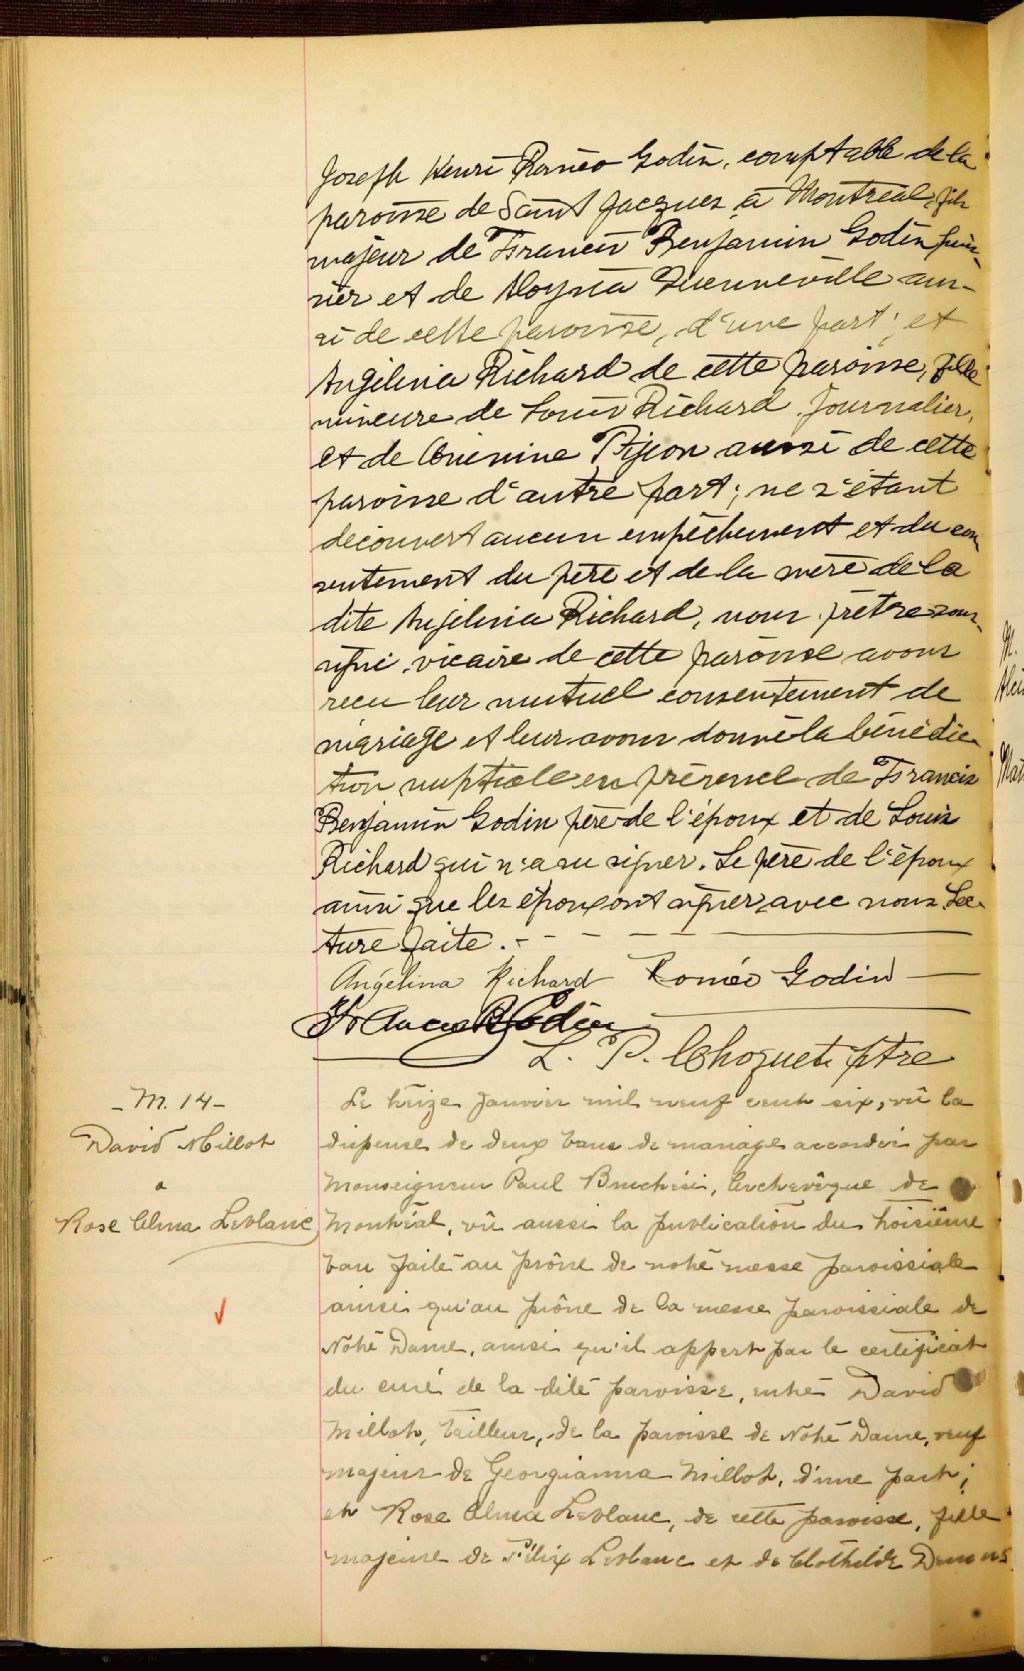 Joseph Henri Roméo Godin, comptable de la
paroisse de Saint Jacques à Montréal, fils
majeur de Francis Benjamin Godin
et de Aloysia Quenneville aus-
si de cette paroisse, d'une part; et
Angelina Richard de cette paroisse, fille
mineure de Louis Richard, journalier,
et de Pigeon aussi de cette
paroisse d'autre part; ne s'étant
découvert aucun empêchement et du con
sentement du père et de la mère de la
dite Angelina Richard, nous prêtre sous-
signé, vicaire de cette paroisse avons
reçu leur mutuel consentement de
mariage et leur avons donné la bénédic
tion nuptiale en présence de Francis
Benjamin Godin père de l'époux et de Louis
Richard qui n'a su signer. Le père de l'époux
ainsi que les époux ont signer avec nous. Lec-
ture faite.
Angélina Richard Roméo Godin
Francis B. Godin
L. P. Choquet ptre
- M. 14 -
David Millot
a
Rose Alma Leblanc
Le treize janvier mil neuf cent six, vû la
dispense de deux bans de mariage accordée par
Monseigneur Paul Bruchési, Archevêque de
Montréal, vû aussi la publication du troisième
ban faite au prône de notre messe paroissiale
ainsi qu'au prône de la messe paroissiale de
Notre Dame, ainsi qu'il appert par le certificat
du curé de la dite paroisse, entre David
Millot, tailleur, de la paroisse de Notre Dame, veuf
majeur de Georgianna Millot, d'une part;
et Rose Alma Leblanc, de cette paroisse, fille
majeure de Félix Leblanc et de Clothilde
M.